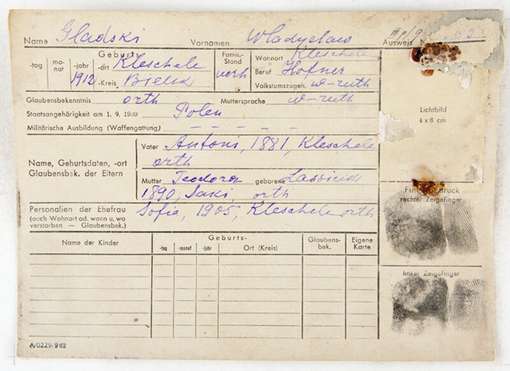 Name Gladski Vornamen Wladyslaw Ausweis
-tag mo-nat -jahr Geburts- -ort Kleschele Famil.-Stand Wohnort Kleschele
1912 -Kreis Bielsk verh Beruf
Volkstumszugeh. w-ruth
Glaubensbekenntnis orth Muttersprache w-ruth
Staatsangehörigkeit am 1. 9. 1939 Polen
Militärische Ausbildung (Waffengattung) – – – – – –
Lichtbild
4 x 6 cm
Name, Geburtsdaten, -ort
Glaubensbek. der Eltern
Vater Antoni, 1881, Kleschele
orth
Mutter Teodora geborene
1890, orth
Fingerabdruck
rechter Zeigefinger
Personalien der Ehefrau
(auch Wohnort ad. wann u. wo
verstorben — Glaubensbek.)
Sofie, 1905, Kleschele orth
Name der Kinder Geburts- Glaubens-bek. Eigene Karte
-tag -monat -jahr Ort (Kreis)
linker Zeigefinger